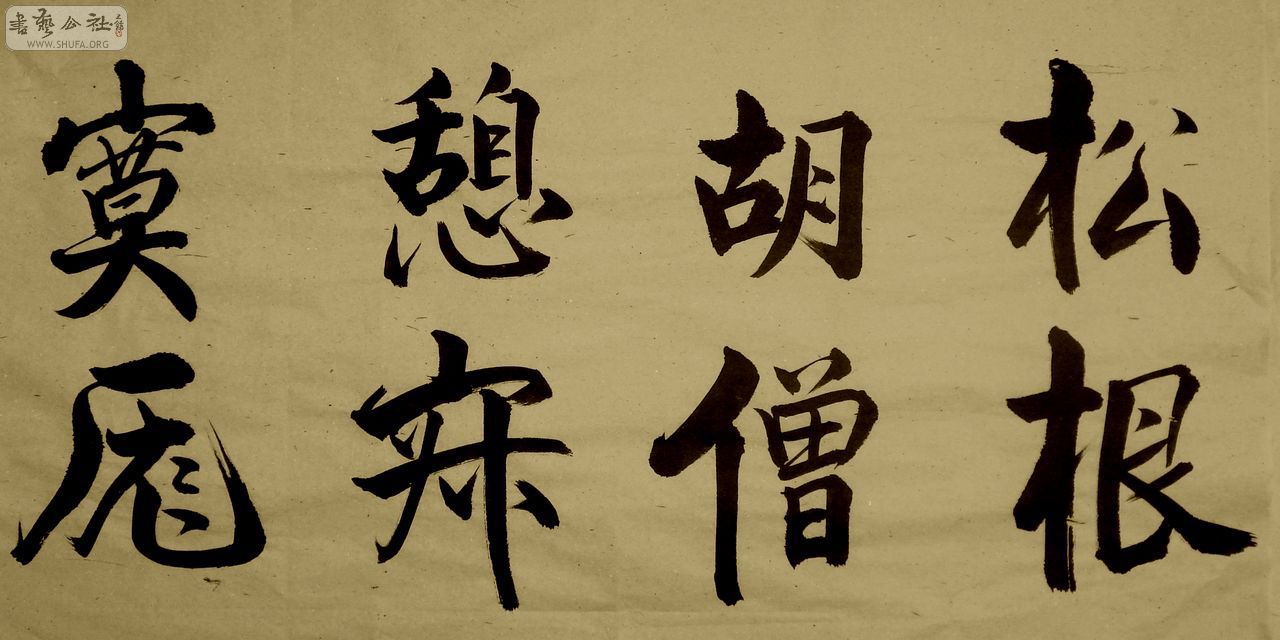 松根
胡僧
憩寂
寞厖
書藝公社
WWW.SHUFA.ORG